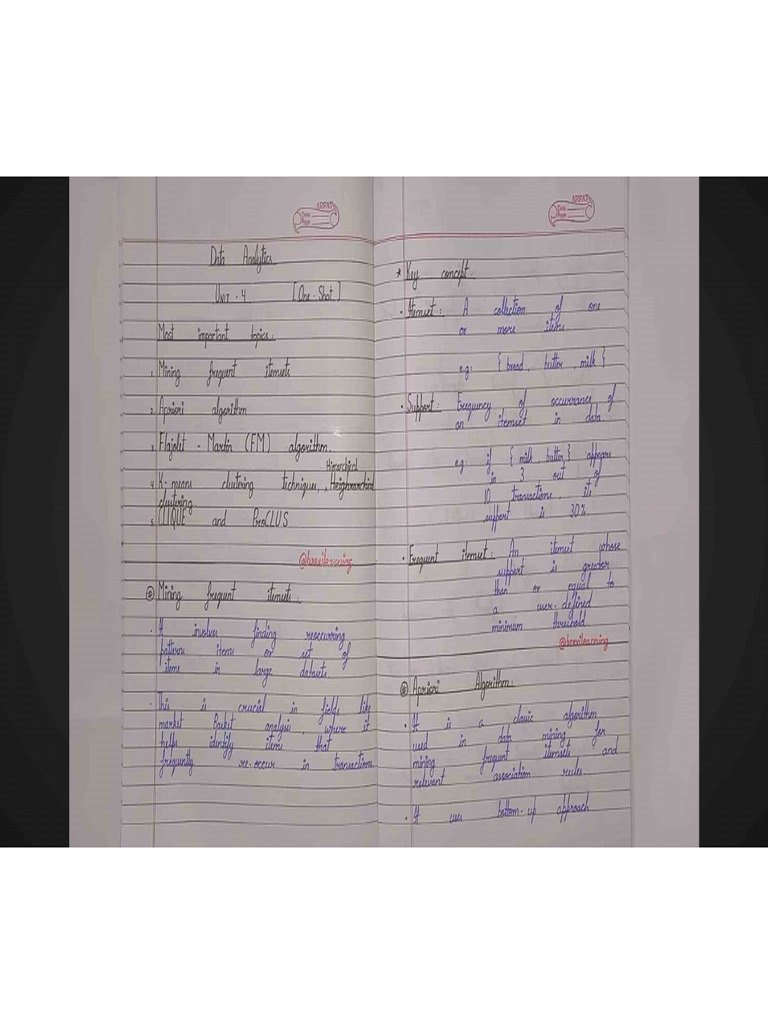 Data Analytics
UNIT - 4 [One-Shot]
Most important topics:
1. Mining frequent itemsets
2. Apriori algorithm
3. Flajolet - Martin (FM) algorithm.
Hierarchical
4. K-means clustering techniques,
clustering.
5. CLIQUE and ProCLUS
@bcomilearning
* Mining frequent itemsets :
• It involves finding reoccurring
patterns items or set of
items in large datasets
• This is crucial in fields like
market Basket analysis, where it
helps identify items that
frequently re-occur in transactions
ARPAN
Date
Page
* Key concept
• Itemset : A collection of one
or more items
eg: { bread, butter, milk }
• Support : Frequency of occurrance of
an itemset in data.
eg: if { milk, butter } appears
in 3 out of
10 transactions, its
support is 30%
• Frequent itemset : An itemset whose
support is greater
then or equal to
a user-defined
minimum threshold.
@bcomilearning
* Apriori Algorithm:
• It is a classic algorithm
used in data mining for
mining frequent itemsets and
relevant association rules.
• It uses bottom-up approach